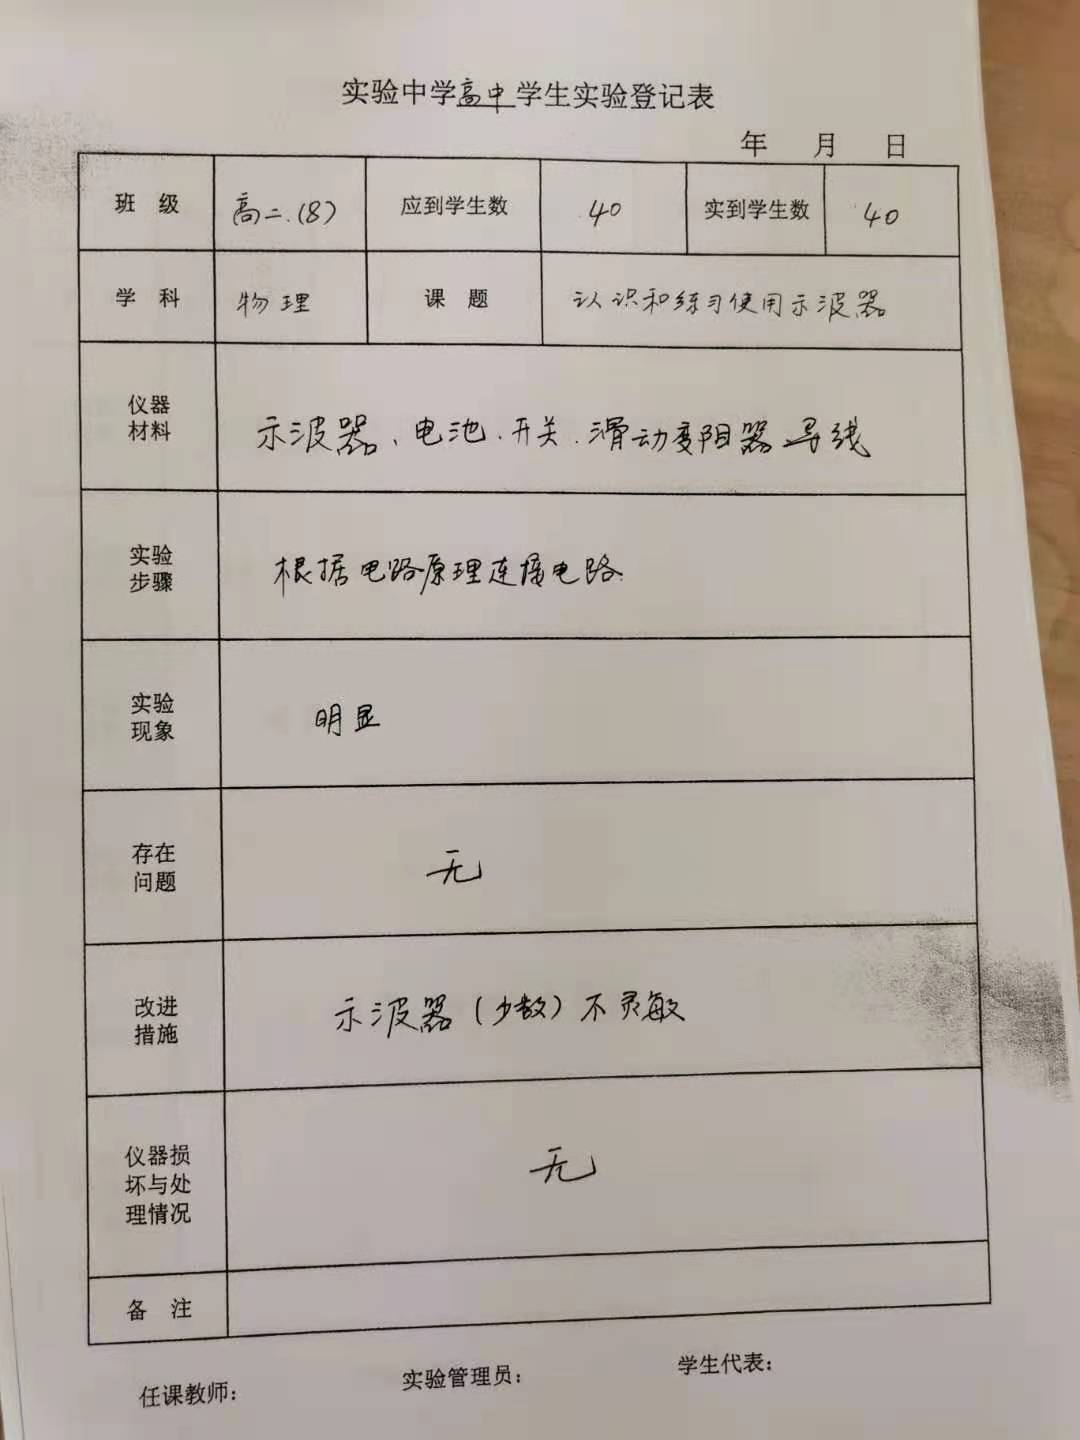 实验中学高中学生实验登记表
年 月 日
班 级 高二.(8) 应到学生数 40 实到学生数 40
学 科 物理 课 题 认识和练习使用示波器
仪器
材料
示波器、电池、开关、滑动变阻器 导线
实验
步骤
根据电路原理连接电路.
实验
现象
明显
存在
问题
无
改进
措施
示波器(少数)不灵敏
仪器损
坏与处
理情况
无
备 注
任课教师: 实验管理员: 学生代表: